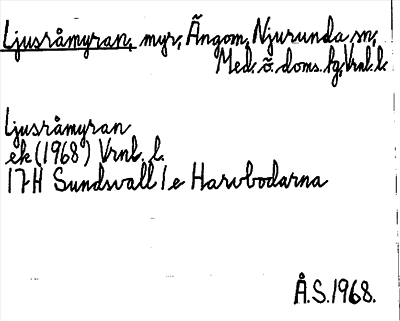 Ljusråmyran, myr, Ängom, Njurunda sn,
Med. ö. doms. hg, Vrnl. l.
Ljusråmyran
ek (1968) Vrnl. l.
17H Sundsvall 1e Harvbodarna
Å.S. 1968.